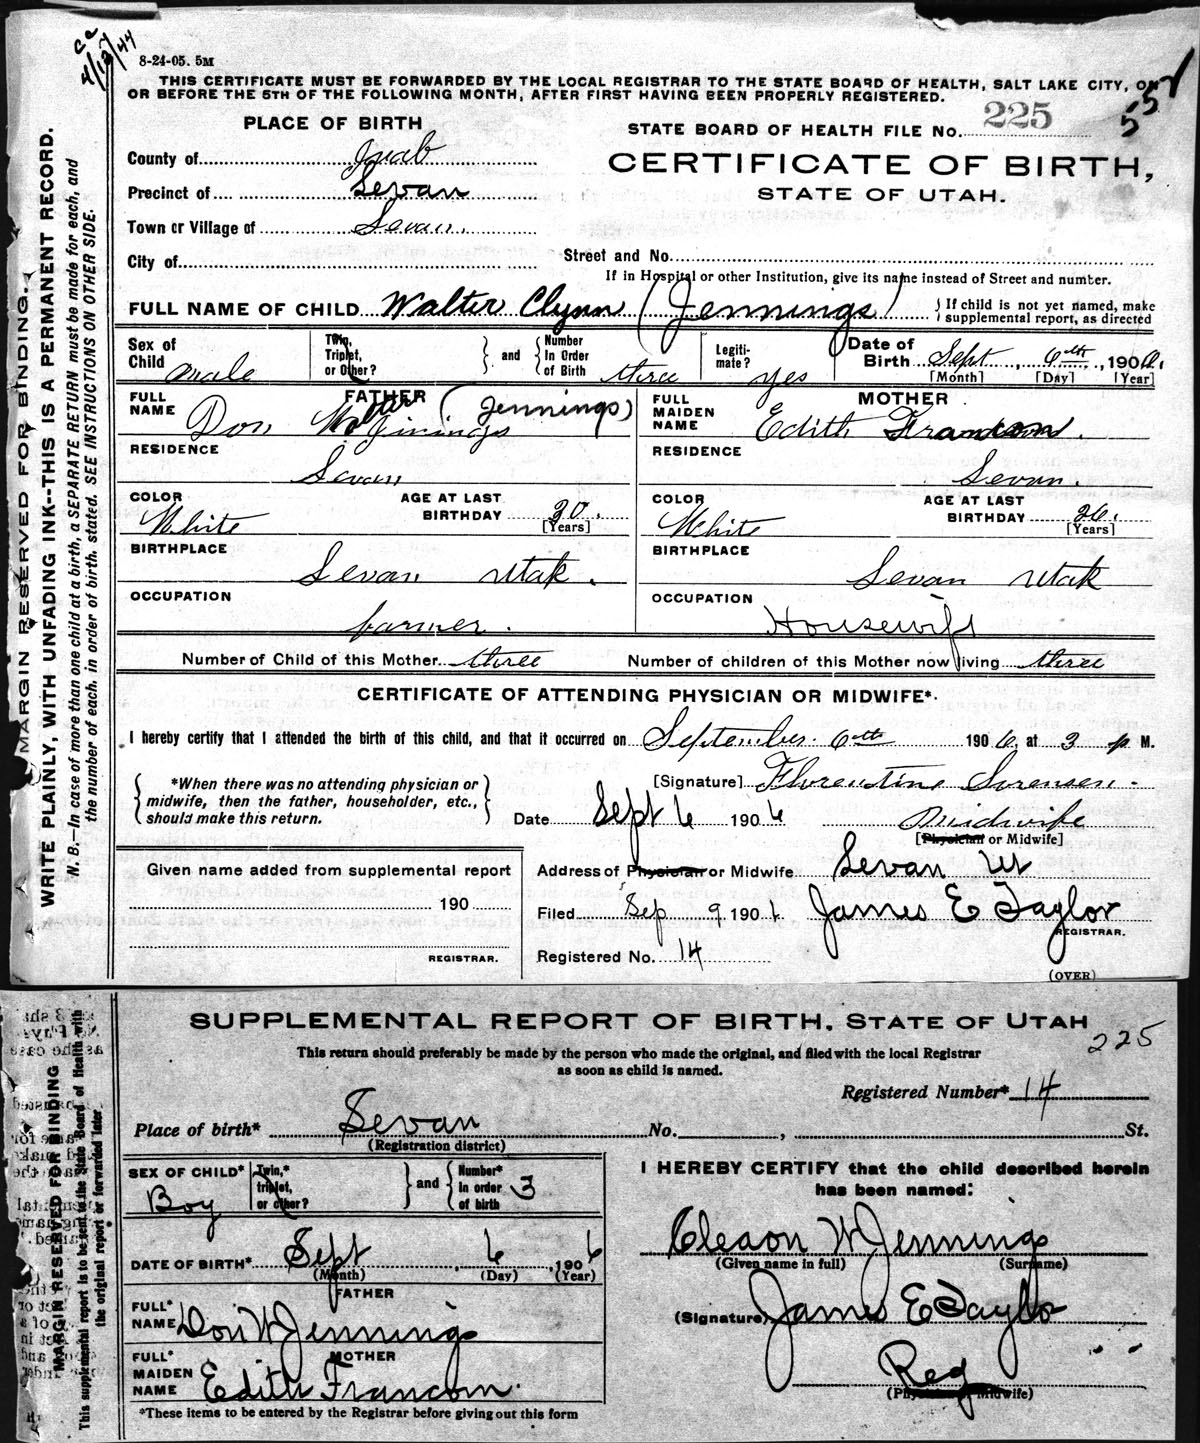 ca
4/17/44
8-24-05. 5M
THIS CERTIFICATE MUST BE FORWARDED BY THE LOCAL REGISTRAR TO THE STATE BOARD OF HEALTH, SALT LAKE CITY, ON
OR BEFORE THE 5TH OF THE FOLLOWING MONTH, AFTER FIRST HAVING BEEN PROPERLY REGISTERED.
PLACE OF BIRTH
STATE BOARD OF HEALTH FILE No. 225
County of Juab
CERTIFICATE OF BIRTH,
Precinct of Levan
STATE OF UTAH.
Town or Village of Levan
City of
Street and No.
If in Hospital or other Institution, give its name instead of Street and number.
FULL NAME OF CHILD Walter Clynn (Jennings) If child is not yet named, make
supplemental report, as directed
Sex of Child male
Twin, Triplet, or Other? and Number In Order of Birth three
Legiti-mate? yes
Date of Birth Sept 6th, 1906.
[Month] [Day] [Year]
FATHER
FULL NAME Don Walter Jinings (Jennings)
MOTHER
FULL MAIDEN NAME Edith Francom.
RESIDENCE Levan
RESIDENCE Levan.
COLOR White AGE AT LAST BIRTHDAY 30. [Years]
COLOR White AGE AT LAST BIRTHDAY 26. [Years]
BIRTHPLACE Levan Utah.
BIRTHPLACE Levan Utah
OCCUPATION farmer.
OCCUPATION Housewife
Number of Child of this Mother three Number of children of this Mother now living three
CERTIFICATE OF ATTENDING PHYSICIAN OR MIDWIFE*.
I hereby certify that I attended the birth of this child, and that it occurred on September 6th 1906, at 3 p M.
*When there was no attending physician or
midwife, then the father, householder, etc.,
should make this return.
[Signature] Florentine Sorensen.
Date Sept 6 1906 Midwife
[Physician or Midwife]
Given name added from supplemental report
190
REGISTRAR.
Address of Physician or Midwife Levan Ut
Filed Sep 9 1906 James E Taylor
REGISTRAR.
Registered No. 14
(OVER)
MARGIN RESERVED FOR BINDING.
WRITE PLAINLY, WITH UNFADING INK--THIS IS A PERMANENT RECORD.
N. B.—In case of more than one child at a birth, a SEPARATE RETURN must be made for each, and
the number of each, in order of birth, stated. SEE INSTRUCTIONS ON OTHER SIDE.
SUPPLEMENTAL REPORT OF BIRTH, STATE OF UTAH
225
This return should preferably be made by the person who made the original, and filed with the local Registrar
as soon as child is named.
Registered Number* 14
Place of birth* Levan No. , St.
(Registration district)
SEX OF CHILD* Boy
Twin,* triplet, or other? and Number* in order of birth 3
I HEREBY CERTIFY that the child described herein
has been named:
Cleaon W Jennings
(Given name in full) (Surname)
DATE OF BIRTH* Sept 6, 1906
(Month) (Day) (Year)
FATHER
FULL* NAME Don W Jennings
(Signature) James E Taylor
MOTHER
FULL* MAIDEN NAME Edith Francom.
Reg
(Physician or Midwife)
*These items to be entered by the Registrar before giving out this form
MARGIN RESERVED FOR BINDING
This supplemental report is to be sent to the State Board of Health with
the original report or forwarded later